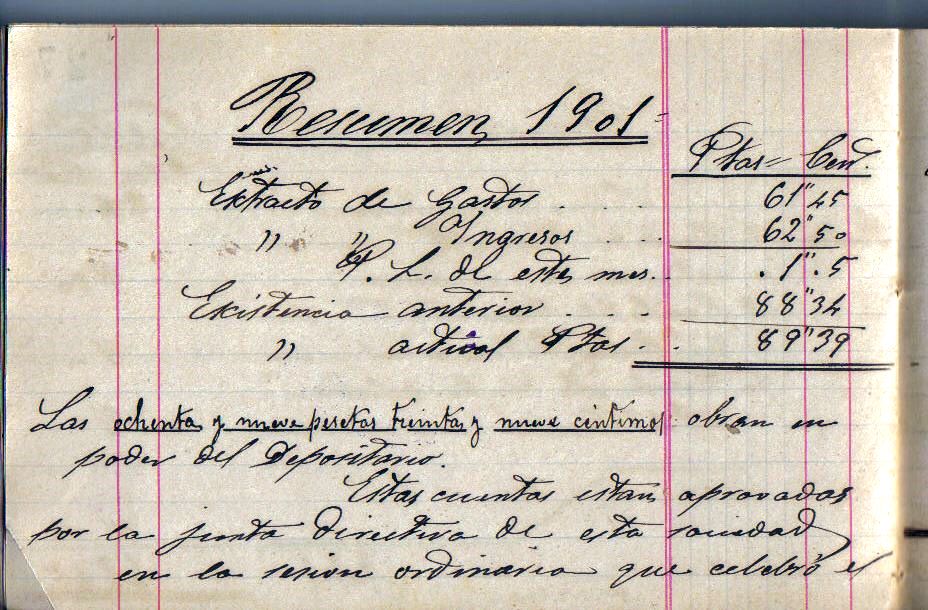 Resumen 1901
Ptas= Cent.
Extracto de Gastos . . . . 61"45
" " Ingresos . . . 62"50
P. L. de este mes . . . 1".5
Existencia anterior . . . . 88"34
" actual Ptas . . 89"39
Las ochenta y nueve pesetas treinta y nueve céntimos obran en
poder del Depositario.
Estas cuentas estan aprovadas
por la junta directiva de esta sociedad
en la sesion ordinaria que celebró el